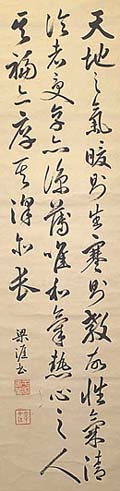 天地之氣暖則生寒則殺故性氣清
冷者受享亦涼薄唯和氣熱心之人
其福亦厚其澤亦長
梁涯書